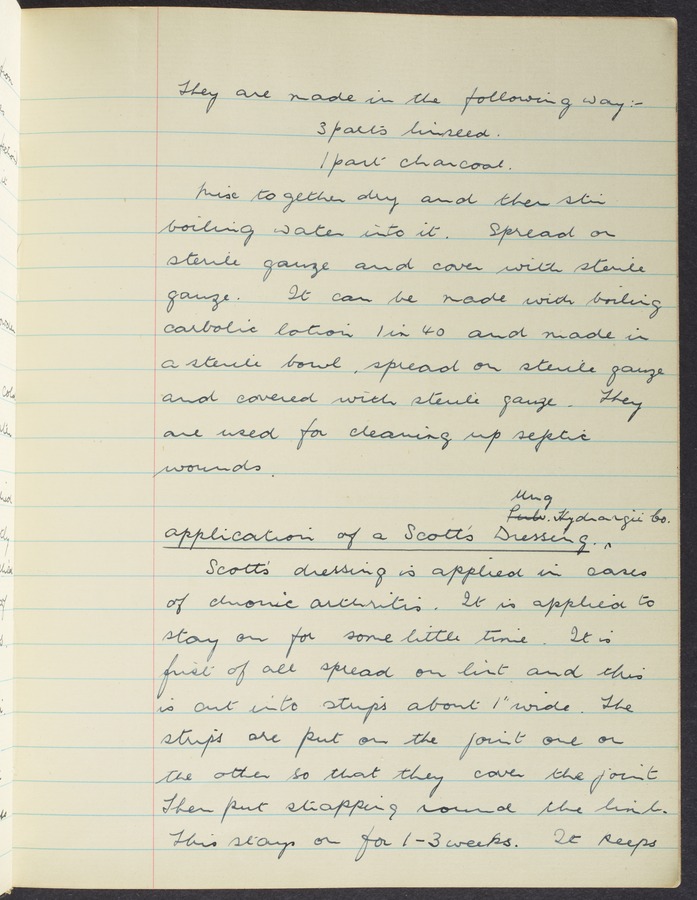 They are made in the following way:-
3 parts linseed.
1 part charcoal.
Mix together dry and then stir
boiling water into it. Spread on
sterile gauze and cover with sterile
gauze. It can be made with boiling
carbolic lotion 1 in 40 and made in
a sterile bowl, spread on sterile gauze
and covered with sterile gauze. They
are used for cleaning up septic
wounds.
Ung
Hydrargii Co.
application of a Scott's Dressing.
Scott's dressing is applied in cases
of chronic arthritis. It is applied to
stay on for some little time. It is
first of all spread on lint and this
is cut into strips about 1" wide. The
strips are put on the joint one on
the other so that they cover the joint
Then put strapping round the limb.
This stays on for 1-3 weeks. It keeps